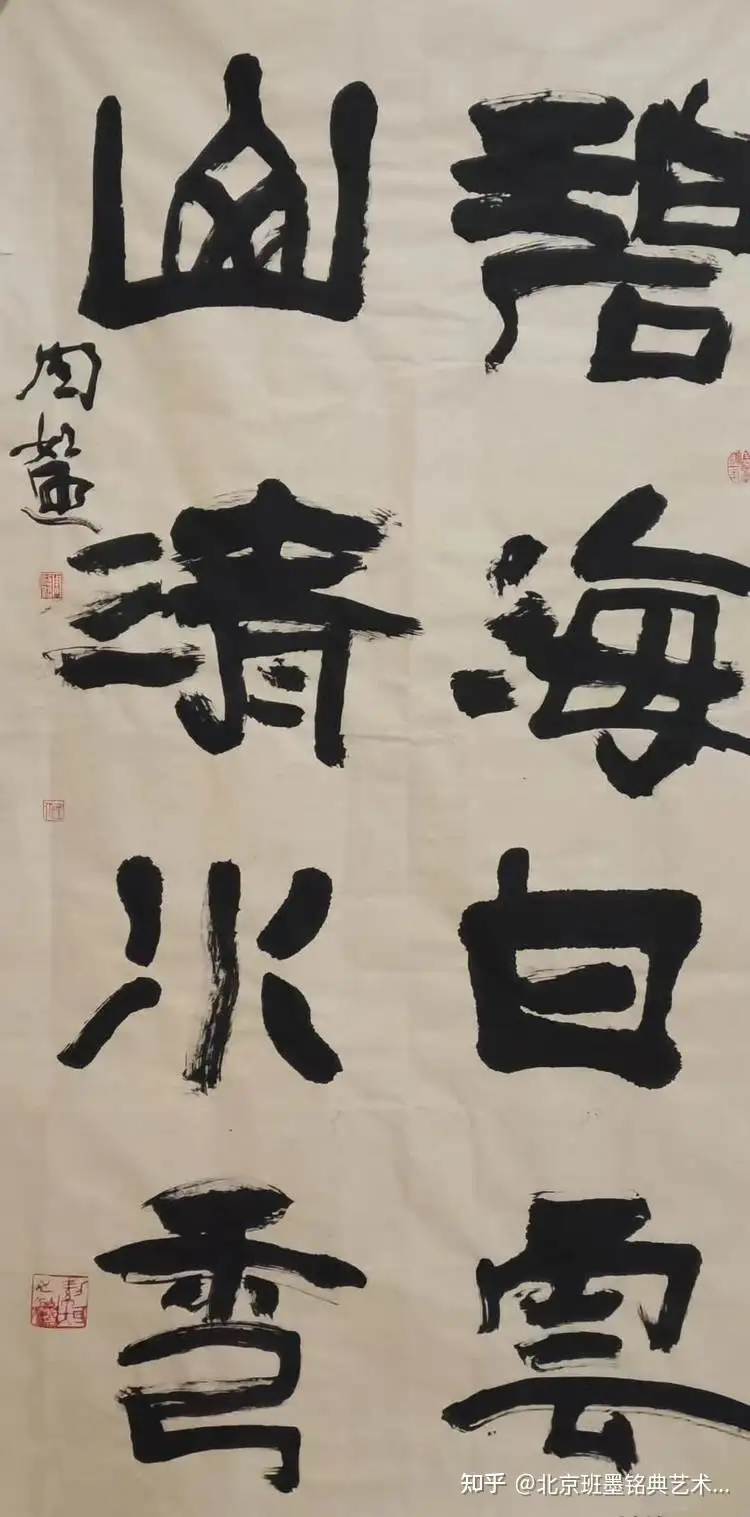 碧海白雲
山清水秀
周
知乎 @北京班墨铭典艺术...